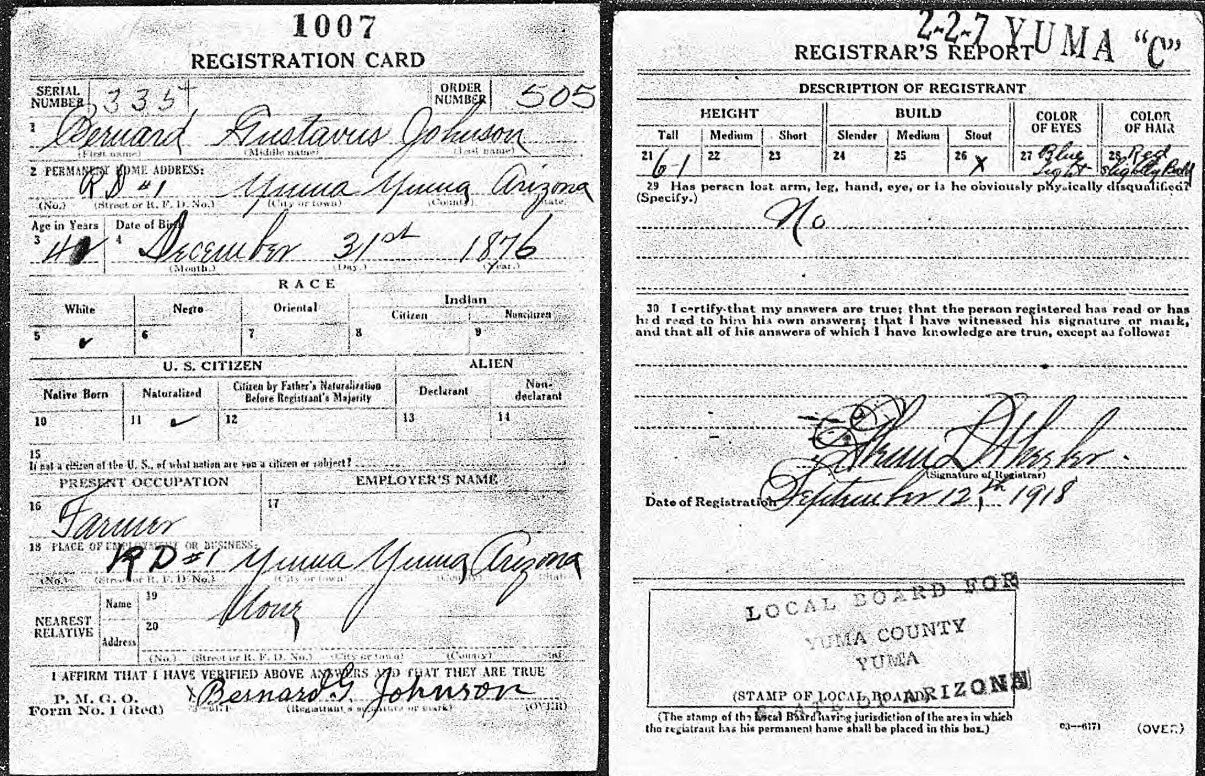 1007
REGISTRATION CARD
SERIAL NUMBER 335
ORDER NUMBER 505
1 Bernard Gustavus Johnson
(First name) (Middle name) (Last name)
2 PERMANENT HOME ADDRESS:
RD #1 Yuma Yuma Arizona
(No.) (Street or R. F. D. No.) (City or town) (County) State.
Age in Years Date of Birth
3 4 December 31st 1876
(Month.) (Day.) (Year.)
RACE
White Negro Oriental Indian
Citizen Noncitizen
5 ✓ 6 7 8 9
U. S. CITIZEN ALIEN
Native Born Naturalized Citizen by Father's Naturalization Before Registrant's Majority Declarant Non-declarant
10 11 ✓ 12 13 14
15
If not a citizen of the U. S., of what nation are you a citizen or subject?
PRESENT OCCUPATION EMPLOYER'S NAME
16 Farmer 17
18 PLACE OF EMPLOYMENT OR BUSINESS:
RD #1 Yuma Yuma Arizona
(No.) (Street or R. F. D. No.) (City or town) (County) State
NEAREST RELATIVE
Name 19 None
Address 20
(No.) (Street or R. F. D. No.) (City or town) (County) State
I AFFIRM THAT I HAVE VERIFIED ABOVE ANSWERS AND THAT THEY ARE TRUE
P. M. G. O.
Form No. 1 (Red) Bernard G Johnson
(Registrant's signature or mark) (OVER)
2-2-7 YUMA "C"
REGISTRAR'S REPORT
DESCRIPTION OF REGISTRANT
HEIGHT BUILD COLOR OF EYES COLOR OF HAIR
Tall Medium Short Slender Medium Stout
21 6-1 22 23 24 25 26 x 27 Blue Light 28 Red slightly Bald
29 Has person lost arm, leg, hand, eye, or is he obviously physically disqualified?
(Specify.)
No
30 I certify that my answers are true; that the person registered has read or has
had read to him his own answers; that I have witnessed his signature or mark,
and that all of his answers of which I have knowledge are true, except as follows:
(Signature of Registrar)
Date of Registration September 12th 1918
LOCAL BOARD FOR
YUMA COUNTY
YUMA
STATE OF ARIZONA
(STAMP OF LOCAL BOARD)
(The stamp of the Local Board having jurisdiction of the area in which
the registrant has his permanent home shall be placed in this box.)
03—6171 (OVER)